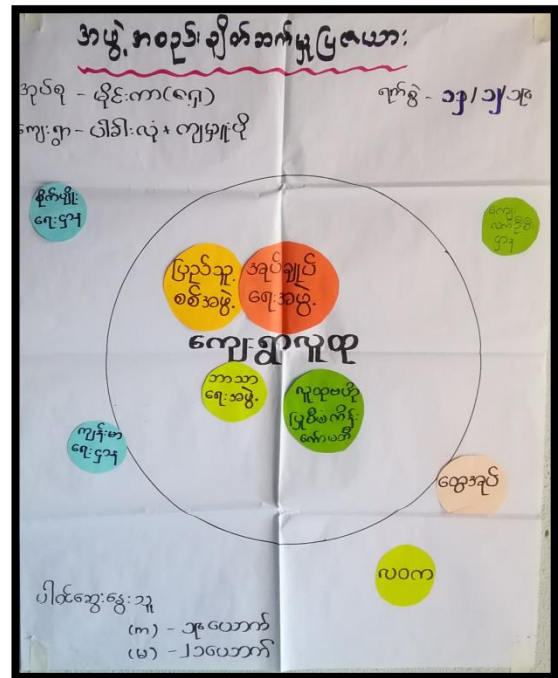 အဖွဲ့အစည်းချိတ်ဆက်မှုပြဇယား
အုပ်စု - မိုင်းကာ(ရှေ့)
ရက်စွဲ -
ကျေးရွာ -
စိုက်မျိုး
ရေးဌာန
ကျေး
လက်ဦးစီး
ဌာန
ပြည်သူ့
စစ်အဖွဲ့
အုပ်ချုပ်
ရေးအဖွဲ့
ကျေးရွာလူထု
ဘာသာ
ရေးအဖွဲ့
လူထုဗဟို
ပြုစီမံကိန်း
ကော်မတီ
ကျန်းမာ
ရေးဌာန
ထွေအုပ်
လဝက
ပါဝင်ဆွေးနွေးသူ
(ကျ) - ၁၉ယောက်
(မ) - ၂၁ယောက်